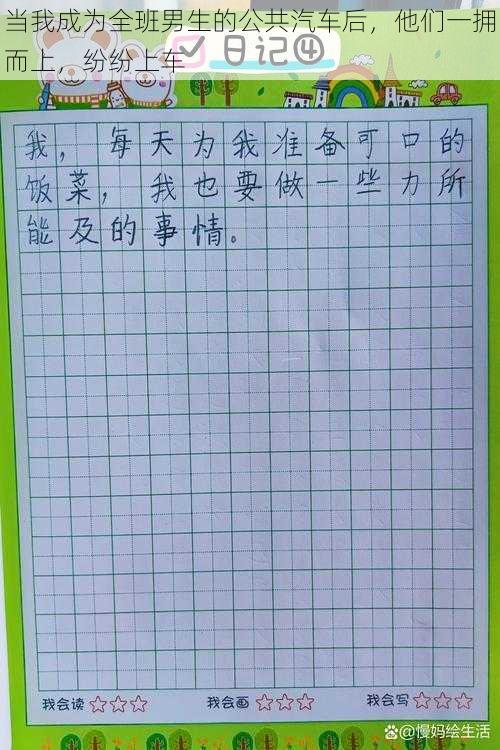 当我成为全班男生的公共汽车后，他们一拥
而上，纷纷上车
日记④
我，每天为我准备可口的
饭菜，我也要做一些力所
能及的事情。
我会读 我会画 我会写
@慢妈绘生活